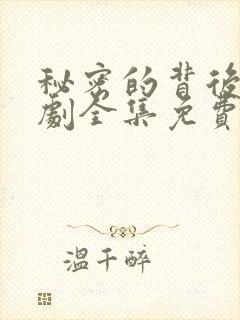 秘密的背後
劇全集免費
溫千醉